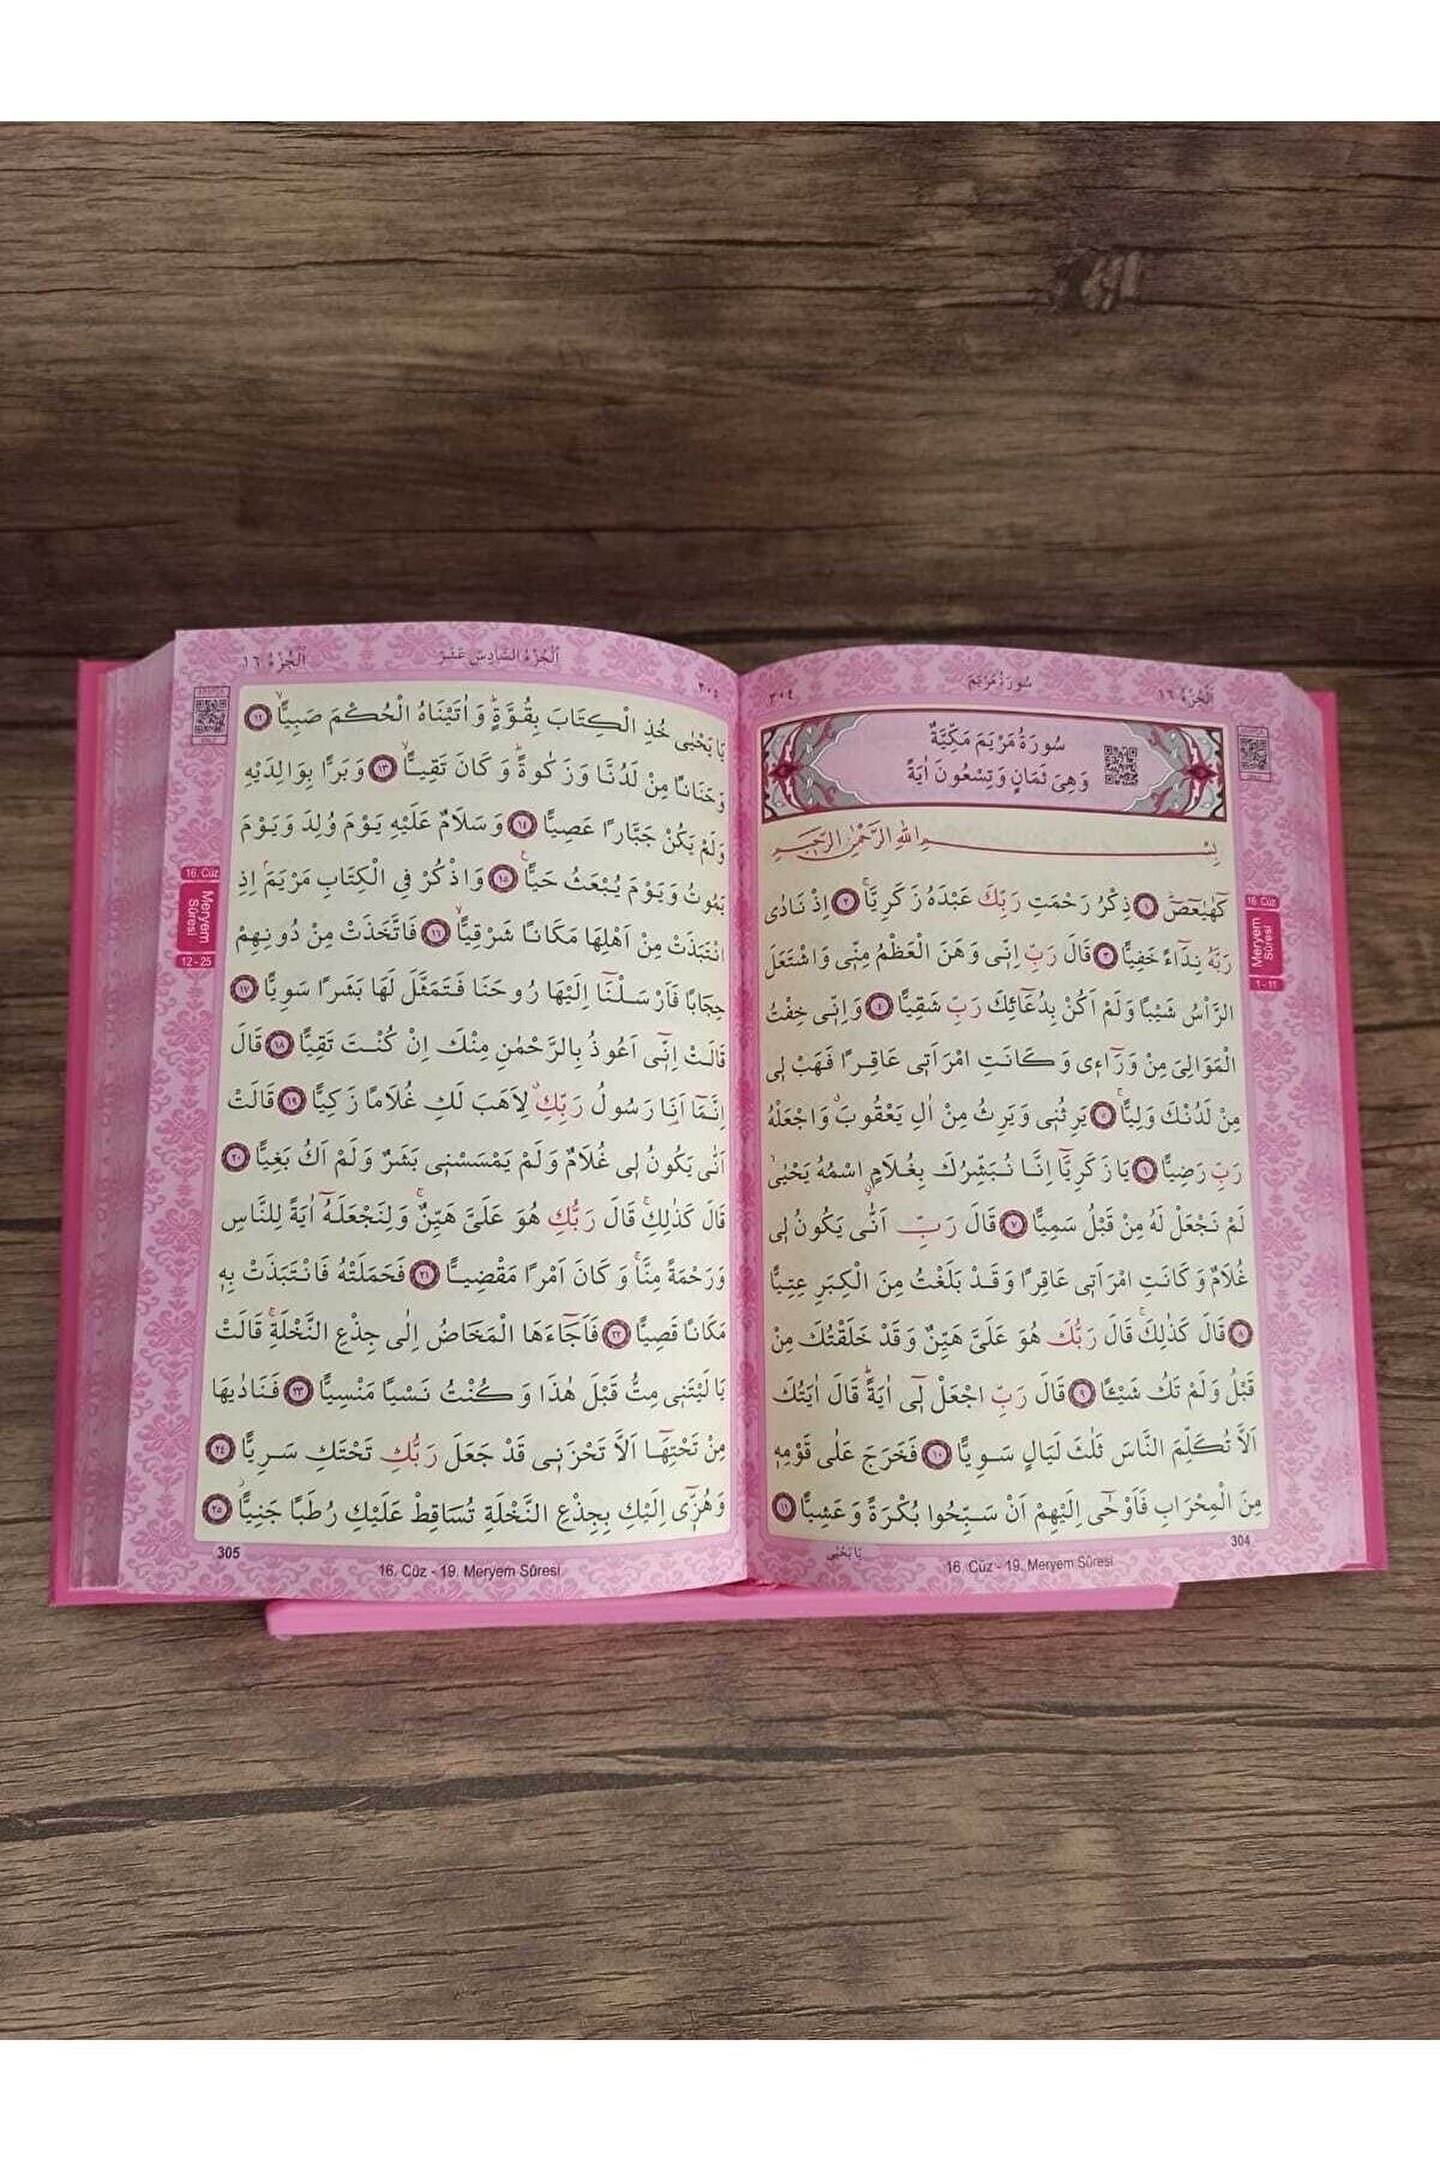 اَلْجُزْءُ ١٦
سُورَةُ مَرْيَمَ
٣٠٤
سُورَةُ مَرْيَمَ مَكِّيَّةٌ
وَهِىَ ثَمَانٍ وَتِسْعُونَ اٰيَةً
بِسْمِ اللّٰهِ الرَّحْمٰنِ الرَّحِيمِ
كٓهٰيٰعٓصٓ ١ ذِكْرُ رَحْمَتِ رَبِّكَ عَبْدَهُ زَكَرِيَّاۚ ٢ اِذْ نَادٰى
رَبَّهُ نِدَٓاءً خَفِيًّا ٣ قَالَ رَبِّ اِنّ۪ى وَهَنَ الْعَظْمُ مِنّ۪ى وَاشْتَعَلَ
الرَّاْسُ شَيْبًا وَلَمْ اَكُنْ بِدُعَٓائِكَ رَبِّ شَقِيًّا ٤ وَاِنّ۪ى خِفْتُ
الْمَوَالِىَ مِنْ وَرَٓاء۪ى وَكَانَتِ امْرَاَت۪ى عَاقِرًا فَهَبْ ل۪ى
مِنْ لَدُنْكَ وَلِيًّاۙ ٥ يَرِثُن۪ى وَيَرِثُ مِنْ اٰلِ يَعْقُوبَۗ وَاجْعَلْهُ
رَبِّ رَضِيًّا ٦ يَا زَكَرِيَّٓا اِنَّا نُبَشِّرُكَ بِغُلَامٍۨ اسْمُهُ يَحْيٰىۙ
لَمْ نَجْعَلْ لَهُ مِنْ قَبْلُ سَمِيًّا ٧ قَالَ رَبِّ اَنّٰى يَكُونُ ل۪ى
غُلَامٌ وَكَانَتِ امْرَاَت۪ى عَاقِرًا وَقَدْ بَلَغْتُ مِنَ الْكِبَرِ عِتِيًّا
٨ قَالَ كَذٰلِكَۚ قَالَ رَبُّكَ هُوَ عَلَىَّ هَيِّنٌ وَقَدْ خَلَقْتُكَ مِنْ
قَبْلُ وَلَمْ تَكُ شَيْـًٔا ٩ قَالَ رَبِّ اجْعَلْ ل۪ٓى اٰيَةًۜ قَالَ اٰيَتُكَ
اَلَّا تُكَلِّمَ النَّاسَ ثَلٰثَ لَيَالٍ سَوِيًّا ١٠ فَخَرَجَ عَلٰى قَوْمِه۪
مِنَ الْمِحْرَابِ فَاَوْحٰٓى اِلَيْهِمْ اَنْ سَبِّحُوا بُكْرَةً وَعَشِيًّا ١١
16. Cüz
Meryem
Sûresi
1 - 11
304
16. Cüz - 19. Meryem Sûresi
يَا يَحْيٰى
اَلْجُزْءُ ١٦
اَلْجُزْءُ السَّادِسَ عَشَرَ
٣٠٥
يَا يَحْيٰى خُذِ الْكِتَابَ بِقُوَّةٍۜ وَاٰتَيْنَاهُ الْحُكْمَ صَبِيًّاۙ ١٢
وَحَنَانًا مِنْ لَدُنَّا وَزَكٰوةًۜ وَكَانَ تَقِيًّاۙ ١٣ وَبَرًّا بِوَالِدَيْهِ
وَلَمْ يَكُنْ جَبَّارًا عَصِيًّا ١٤ وَسَلَامٌ عَلَيْهِ يَوْمَ وُلِدَ وَيَوْمَ
يَمُوتُ وَيَوْمَ يُبْعَثُ حَيًّا۟ ١٥ وَاذْكُرْ فِى الْكِتَابِ مَرْيَمَۢ اِذِ
انْتَبَذَتْ مِنْ اَهْلِهَا مَكَانًا شَرْقِيًّاۙ ١٦ فَاتَّخَذَتْ مِنْ دُونِهِمْ
حِجَابًا فَاَرْسَلْنَٓا اِلَيْهَا رُوحَنَا فَتَمَثَّلَ لَهَا بَشَرًا سَوِيًّا ١٧
قَالَتْ اِنّ۪ٓى اَعُوذُ بِالرَّحْمٰنِ مِنْكَ اِنْ كُنْتَ تَقِيًّا ١٨ قَالَ
اِنَّمَٓا اَنَا رَسُولُ رَبِّكِۗ لِاَهَبَ لَكِ غُلَامًا زَكِيًّا ١٩ قَالَتْ
اَنّٰى يَكُونُ ل۪ى غُلَامٌ وَلَمْ يَمْسَسْن۪ى بَشَرٌ وَلَمْ اَكُ بَغِيًّا ٢٠
قَالَ كَذٰلِكِۚ قَالَ رَبُّكِ هُوَ عَلَىَّ هَيِّنٌۚ وَلِنَجْعَلَهُٓ اٰيَةً لِلنَّاسِ
وَرَحْمَةً مِنَّاۚ وَكَانَ اَمْرًا مَقْضِيًّا ٢١ فَحَمَلَتْهُ فَانْتَبَذَتْ بِه۪
مَكَانًا قَصِيًّا ٢٢ فَاَجَٓاءَهَا الْمَخَاضُ اِلٰى جِذْعِ النَّخْلَةِۚ قَالَتْ
يَا لَيْتَن۪ى مِتُّ قَبْلَ هٰذَا وَكُنْتُ نَسْيًا مَنْسِيًّا ٢٣ فَنَادٰيهَا
مِنْ تَحْتِهَٓا اَلَّا تَحْزَن۪ى قَدْ جَعَلَ رَبُّكِ تَحْتَكِ سَرِيًّا ٢٤
وَهُزّ۪ٓى اِلَيْكِ بِجِذْعِ النَّخْلَةِ تُسَاقِطْ عَلَيْكِ رُطَبًا جَنِيًّاۘ ٢٥
16. Cüz
Meryem
Sûresi
12 - 25
305
16. Cüz - 19. Meryem Sûresi